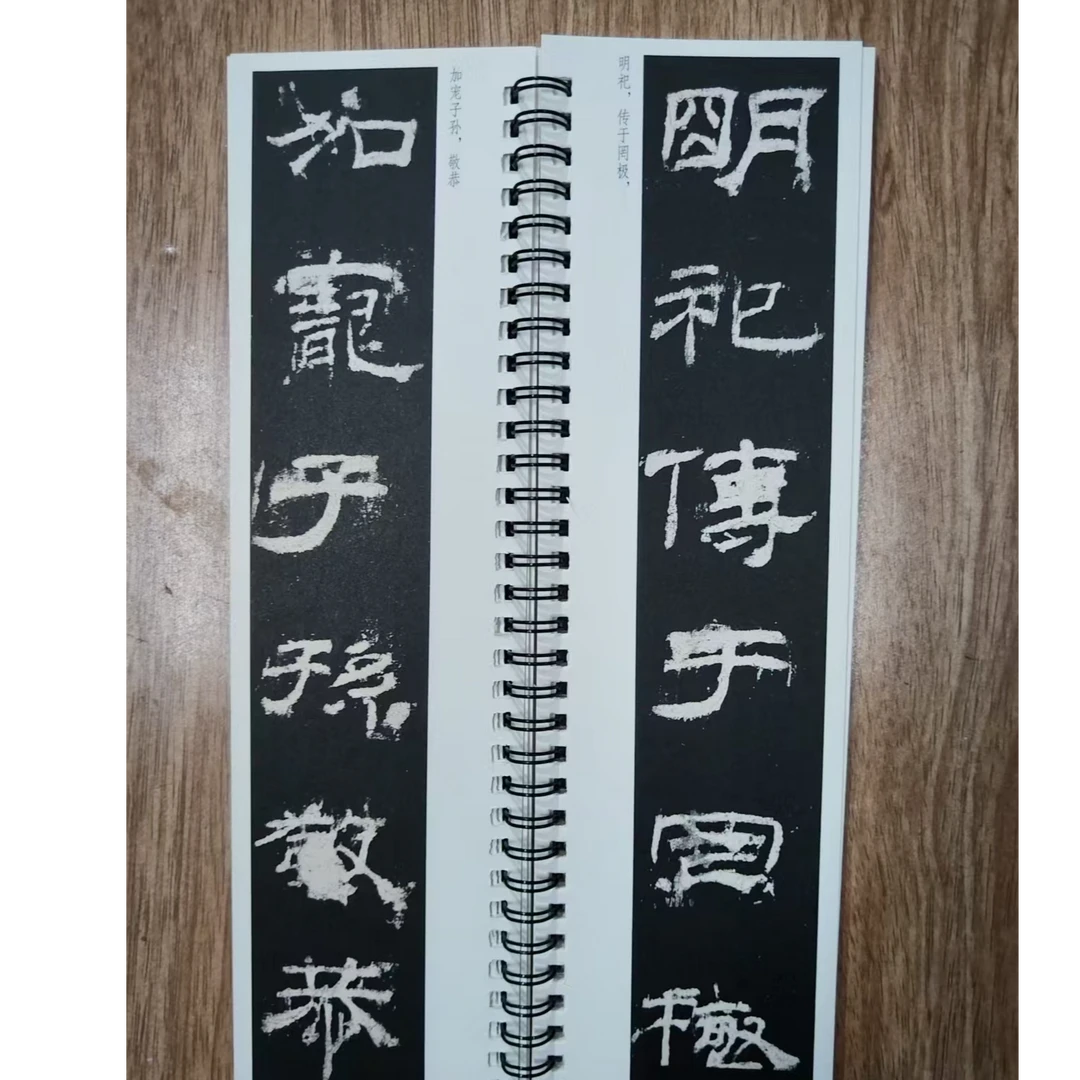 明祀傳于罔極
明祀，传于罔极，
加寵子孫敬恭
加宠子孙，敬恭